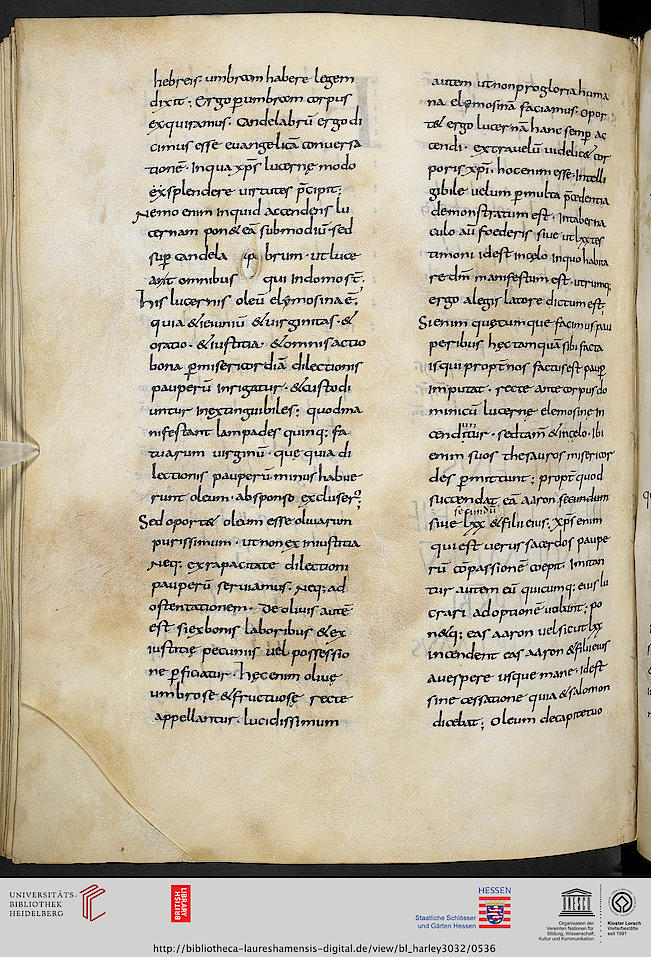 hebreis· umbram habere legem
dixit; Ergo p umbram corpus
exquiramus· Candelabrū ergo di
cimus esse euangelicā conuersa
tionē· In qua xp̄s lucernę modo
exsplendere uirtutes p̄cipit;
Nemo enim inquid accendens lu
cernam pon& eā sub modiū· sed
sup candela brum· ut luce
at omnibus qui in domo st̄·
His lucernis oleū elymosina ē,
quia & ieiuniū & uirginitas· &
oratio· & iustitia· & omnis actio
bona p misericordiā dilectionis
pauperū inrigatur· & custodi
untur inextinguibiles; quod ma
nifestant lampades quinq; fa
tuarum uirginū· que quia di
lectionis pauperū minus habue
runt oleum· ab sponso excluser̄;
Sed oport& oleum esse oliuarum
purissimum· ut non ex iniustitia
Neq; ex rapacitate dilectioni
pauperū seruiamus· Neq; ad
ostentationem· De oliuis autē
est si ex bonis laboribus & ex
iustitię pecuniis uel possessio
ne pficiatur· hęc enim oliuę
umbrose & fructuosę recte
appellantur· lucidissimum
autem ut non pro gloria huma
na elymosinā faciamus· Opor
t& ergo lucernā hanc semp ac
cendi· extra uelū uidelic& cor
poris xp̄i· hoc enim esse intelli
gibile uelum p multa p̄cedentia
demonstratum est· In taberna
culo aū foederis siue ut lxx tes
timoni id est in cęlo in quo habita
re dm̄ manifestum est· utrumq;
ergo a legis latore dictum est;
Si enim quęcumque facimus pau
peribus hęc tanquā sibi facta
is qui propt nos factus est paup
imputat· recte ante corpus do
minicū lucerne elemosine in
cenduntur· sed tam & in cęlo· Ibi
enim suos thesauros misericor
des pmittunt; propt quod
succendat eā aaron secundum
secundū
siue lxx & filii eius· xp̄s enim
qui est uerus sacerdos paupe
rū compassionē coepit· Imitan
tur autem eū quicumq; eius lu
crari adoptionē uolunt; po
n&q; eas aaron uel sicut lxx
incendent eas aaron & filii eius
a uespere usque mane· id est
sine cessatione quia & salomon
dicebat; Oleum de capite tuo
UNIVERSITÄTS-
BIBLIOTHEK
HEIDELBERG
BRITISH
LIBRARY
Staatliche Schlösser
und Gärten Hessen
HESSEN
UNESCO
Organisation der
Vereinten Nationen für
Bildung, Wissenschaft,
Kultur und Kommunikation
Kloster Lorsch
Welterbestätte
seit 1991
http://bibliotheca-laureshamensis-digital.de/view/bl_harley3032/0536